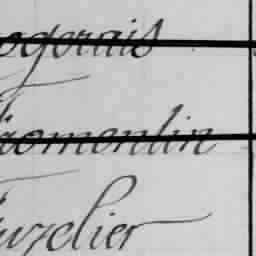 ogerais
iromentin
uzelier